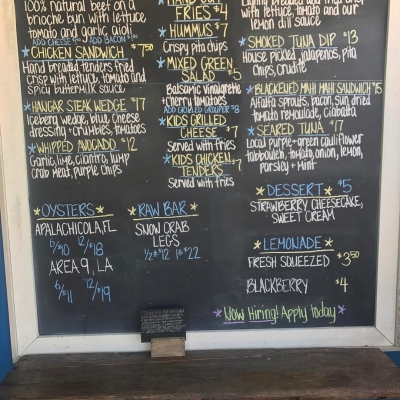 100% natural beef on a
brioche bun with lettuce
tomato and garlic aioli
ADD CHEESE ADD BACON
CHICKEN SANDWICH $7.50
Hand breaded tenders fried
crisp with lettuce, tomato and
spicy buttermilk sauce
HANGAR STEAK WEDGE $17
Iceberg wedge, blue cheese
dressing + crumbles, tomatoes
WHIPPED AVOCADO $12
Garlic, lime, cilantro, lump
crab meat, purple chips
OYSTERS
APALACHICOLA, FL
6/$10 12/$18
AREA 9, LA
6/$11 12/$19
HAND CUT
FRIES $4
HUMMUS $7
Crispy pita chips
MIXED GREEN
SALAD $5
Balsamic vinaigrette
+ cherry tomatoes
ADD GRILLED GROUPER $8
KIDS GRILLED
CHEESE $7
Served with fries
KIDS CHICKEN
TENDERS $7
Served with fries
RAW BAR
SNOW CRAB
LEGS
1/2# $12 1# $22
Lightly breaded and fried crisp
with lettuce, tomato and our
lemon dill sauce
SMOKED TUNA DIP $13
House pickled jalapenos, pita
chips, crudite
BLACKENED MAHI MAHI SANDWICH $15
Alfalfa sprouts, bacon, sun dried
tomato remoulade, ciabatta
SEARED TUNA $17
Local purple + green cauliflower
tabbouleh, tomato, onion, lemon,
parsley + mint
DESSERT $5
STRAWBERRY CHEESECAKE,
SWEET CREAM
LEMONADE
FRESH SQUEEZED $3.50
BLACKBERRY $4
Now Hiring! Apply today